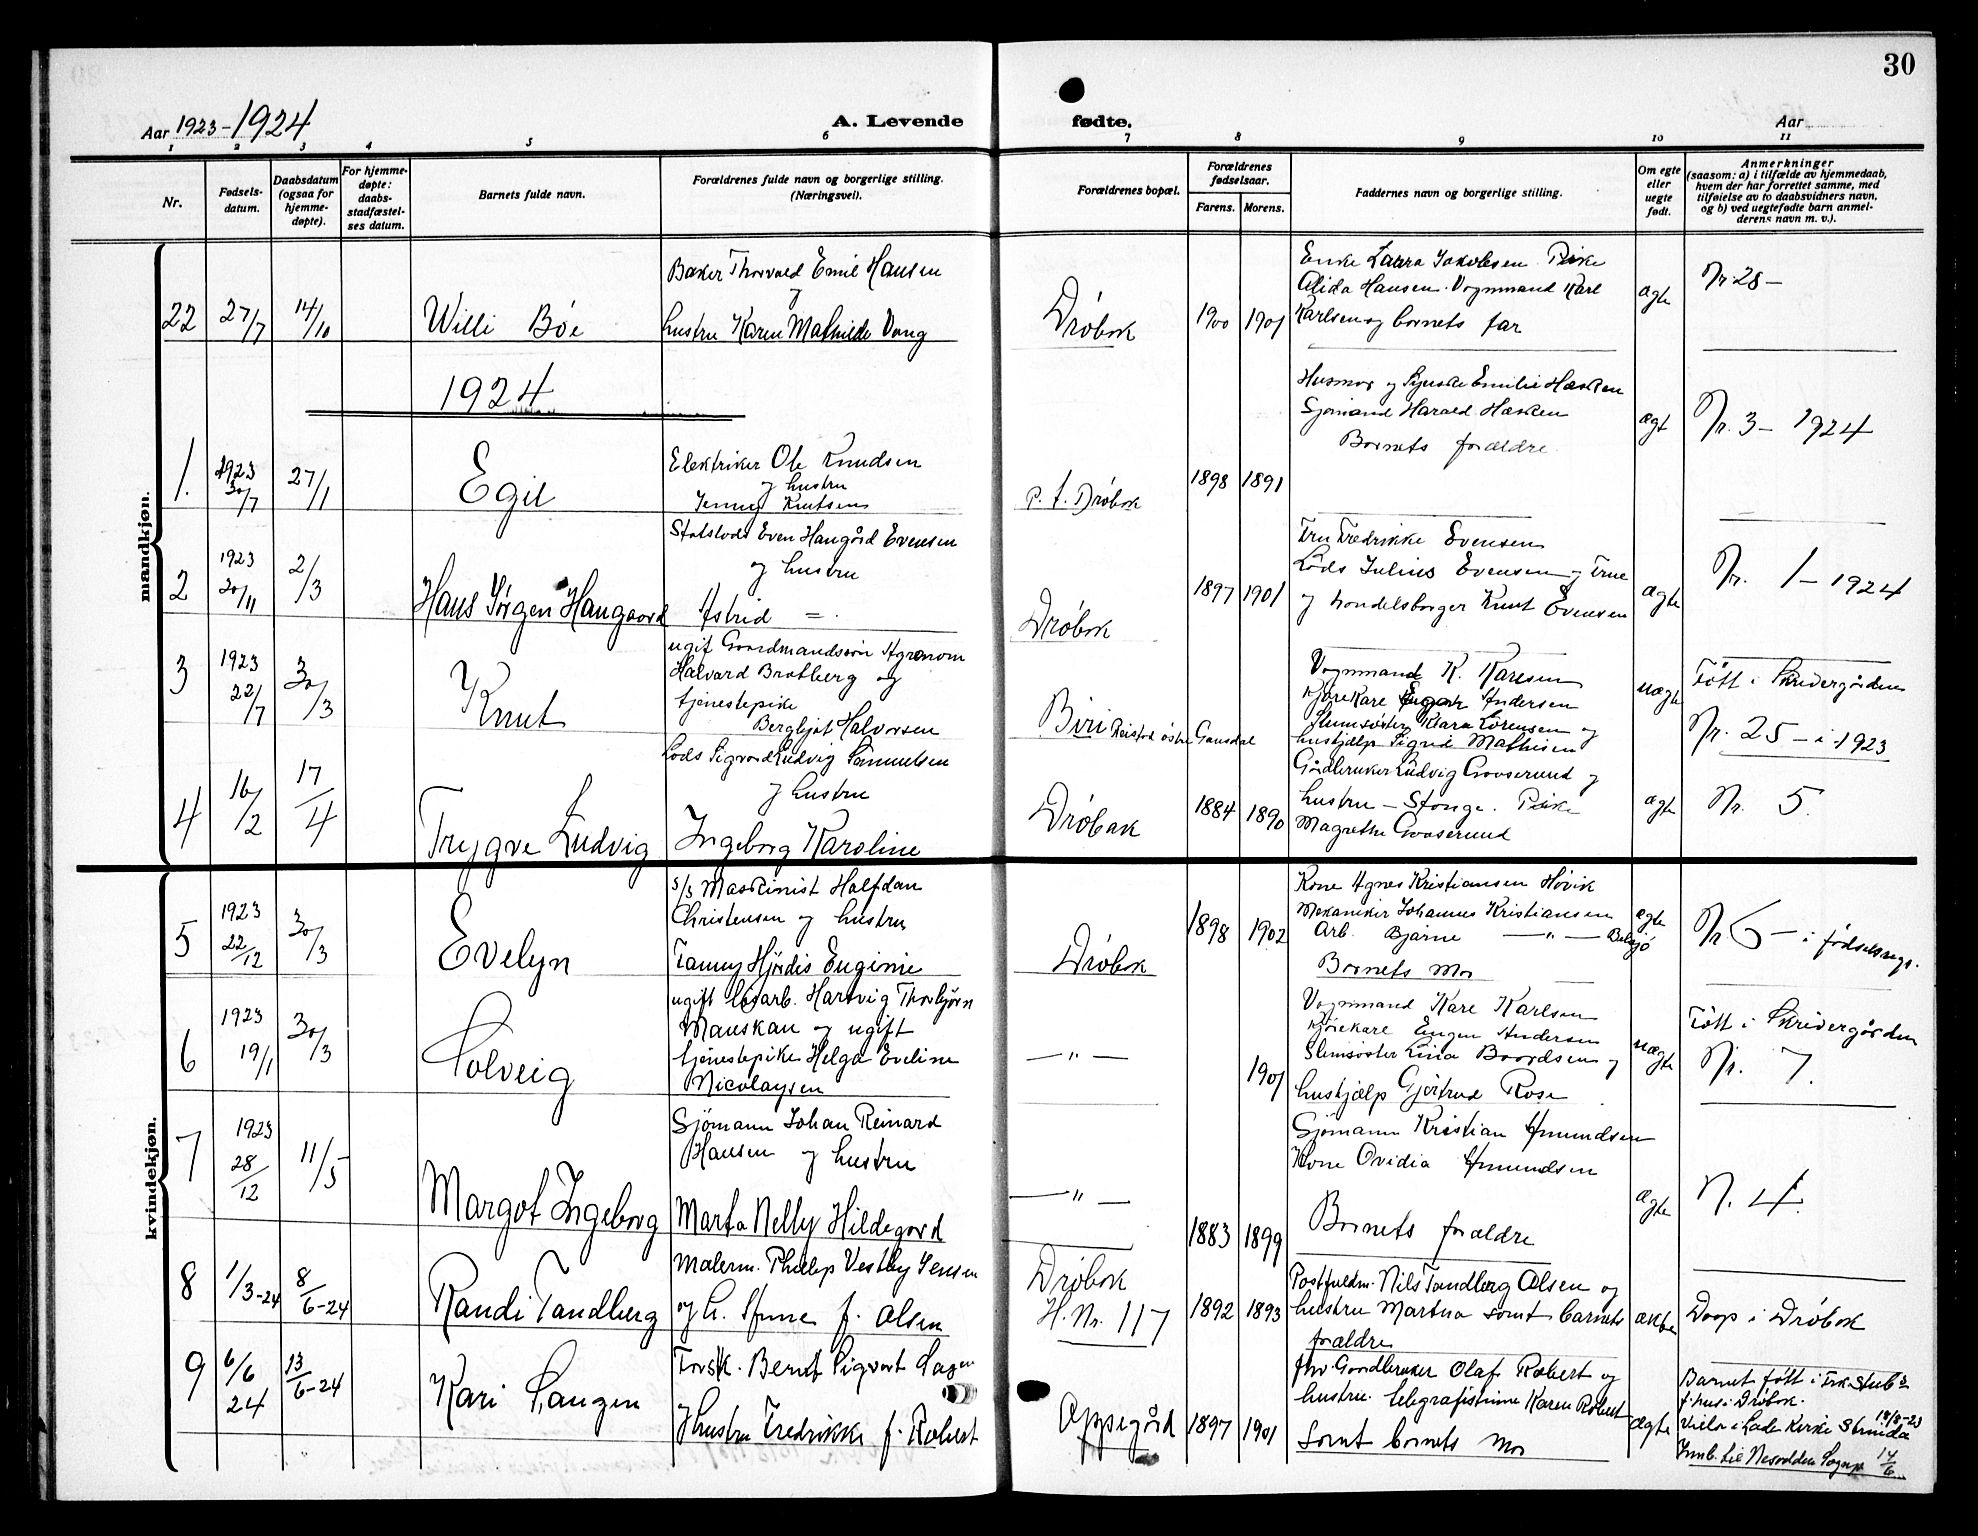 30
Aar 1923-1924
A. Levende
fødte.
Aar
1 2 3 4 5 6 7 8 9 10 11
Nr.
Fødsels-
datum.
Daabsdatum
(ogsaa for
hjemme-
døpte).
For hjemme-
døpte:
daabs-
stadfæstel-
ses datum.
Barnets fulde navn.
Forældrenes fulde navn og borgerlige stilling.
(Næringsvei).
Forældrenes bopæl.
Forældrenes
fødselsaar.
Farens. Morens.
Faddernes navn og borgerlige stilling.
Om egte
eller
uegte
født.
Anmerkninger
(saasom: a) i tilfælde av hjemmedaab,
hvem der har forrettet samme, med
tilføielse av to daabsvidners navn,
og b) ved uegtefødte barn anmel-
derens navn m. v.).
mandkjøn.
22 27/7 14/10 Willi Böe
Baker Thorvald Emil Hansen
og
hustru Karen Mathilde Vang
Dröbak 1900 1901
Enke Laura Jakobsen Pike
Alida Hansen. Vognmand Karl
Karlsen og barnets far
ægte
Nr. 28 -
1924
1. 1923 30/7 27/1 Egil
Elektriker Ole Knudsen
og hustru
Jenny Knutsen
p. t. Dröbak 1898 1891
Husmor og Emilie Hæsken
Sjömand Harald Hæsken
Barnets forældre
ægt
Nr. 3 - 1924
2 1923 30/11 2/3 Hans Jörgen Haugaard
Statslods Even Haugård Evensen
og hustru
Astrid =
Dröbak 1897 1901
Fru Fredrikke Evensen
Lods Julius Evensen og Frue
og handelsborger Knut Evensen
ægte
Nr. 1 - 1924
3 1923 22/7 30/3 Knut
ugift Gaardmandssön Agronom
Halvard Bratberg og
tjenestepike
Bergljot Halvorsen
Biri östre Gausdal
Vognmand K. Karlsen
Kjörekare Eugen Andersen
Klara Lörensen og
hushjælp Sigrid Mathisen
uægte
Fött i Skrivergården
Nr. 25 - i 1923
4 16/2 17/4 Trygve Ludvig
Lods Sigvard Ludvig Samuelsen
og hustru
Ingeborg Karoline
Dröbak 1884 1890
Gårdbruker Ludvig Gooserud og
hustru - Stange. Pike
Magrethe Gooserud
ægte
Nr. 5.
kvindekjøn.
5 1923 22/12 30/3 Evelyn
s/s Maskinist Halfdan
Christensen og hustru
Fanny Hjördis Euginie
Dröbak 1898 1902
Kone Agnes Kristiansen Hövik
Mekaniker Johannes Kristiansen
Arb. Bjarne — " — Belsjö
Barnets Mor
ægte
Nr 6 - i födselsregs.
6 1923 19/1 30/3 Solveig
ugift lösarb. Hartvig Thorbjörn
Manskau og ugift
tjenestepike Helga Eveline
Nicolaysen
— " — 1901
Vognmand Kare Karlsen
Kjörekare Eugen Andersen
Slumsöster Lina Baardsen og
hushjælp Gjertrud Rose
uægte
Fött i Skrivergården
Nr. 7.
7 1923 28/12 11/5 Margot Ingeborg
Sjömann Johan Reinard
Hansen og hustru
Marta Nelly Hildegard
— " — 1883 1899
Sjömann Kristian Amundsen
Kone Ovidia Amundsen
Barnets forældre
ægte
N. 4.
8 1/3-24 8/6-24 Randi Tandberg
Malerm. Philip Vestby Jensen
og h. f. Olsen
Dröbak
H. Nr. 117 1892 1893
Postfuldm. Nils Tandberg Olsen og
hustru Martha samt barnets
forældre
ækte
Daap i Dröbak
9 6/6 24 13/6-24 Kari Langen
Forsk. Bernt Sigvart
og hustru Fredrikke f. Robert
Oppegård 1897 1901
fhv. Gardbruker Olaf Robert og
hustru telegrafistinne Karen Robert
Samt barnets mor
ægte
Barnet fött i Frk. Stubs
f. hus i Dröbak.
Viet i Lade Kirke Strinda 18/8-23
Innb. til Nesodden Sogn. 17/6